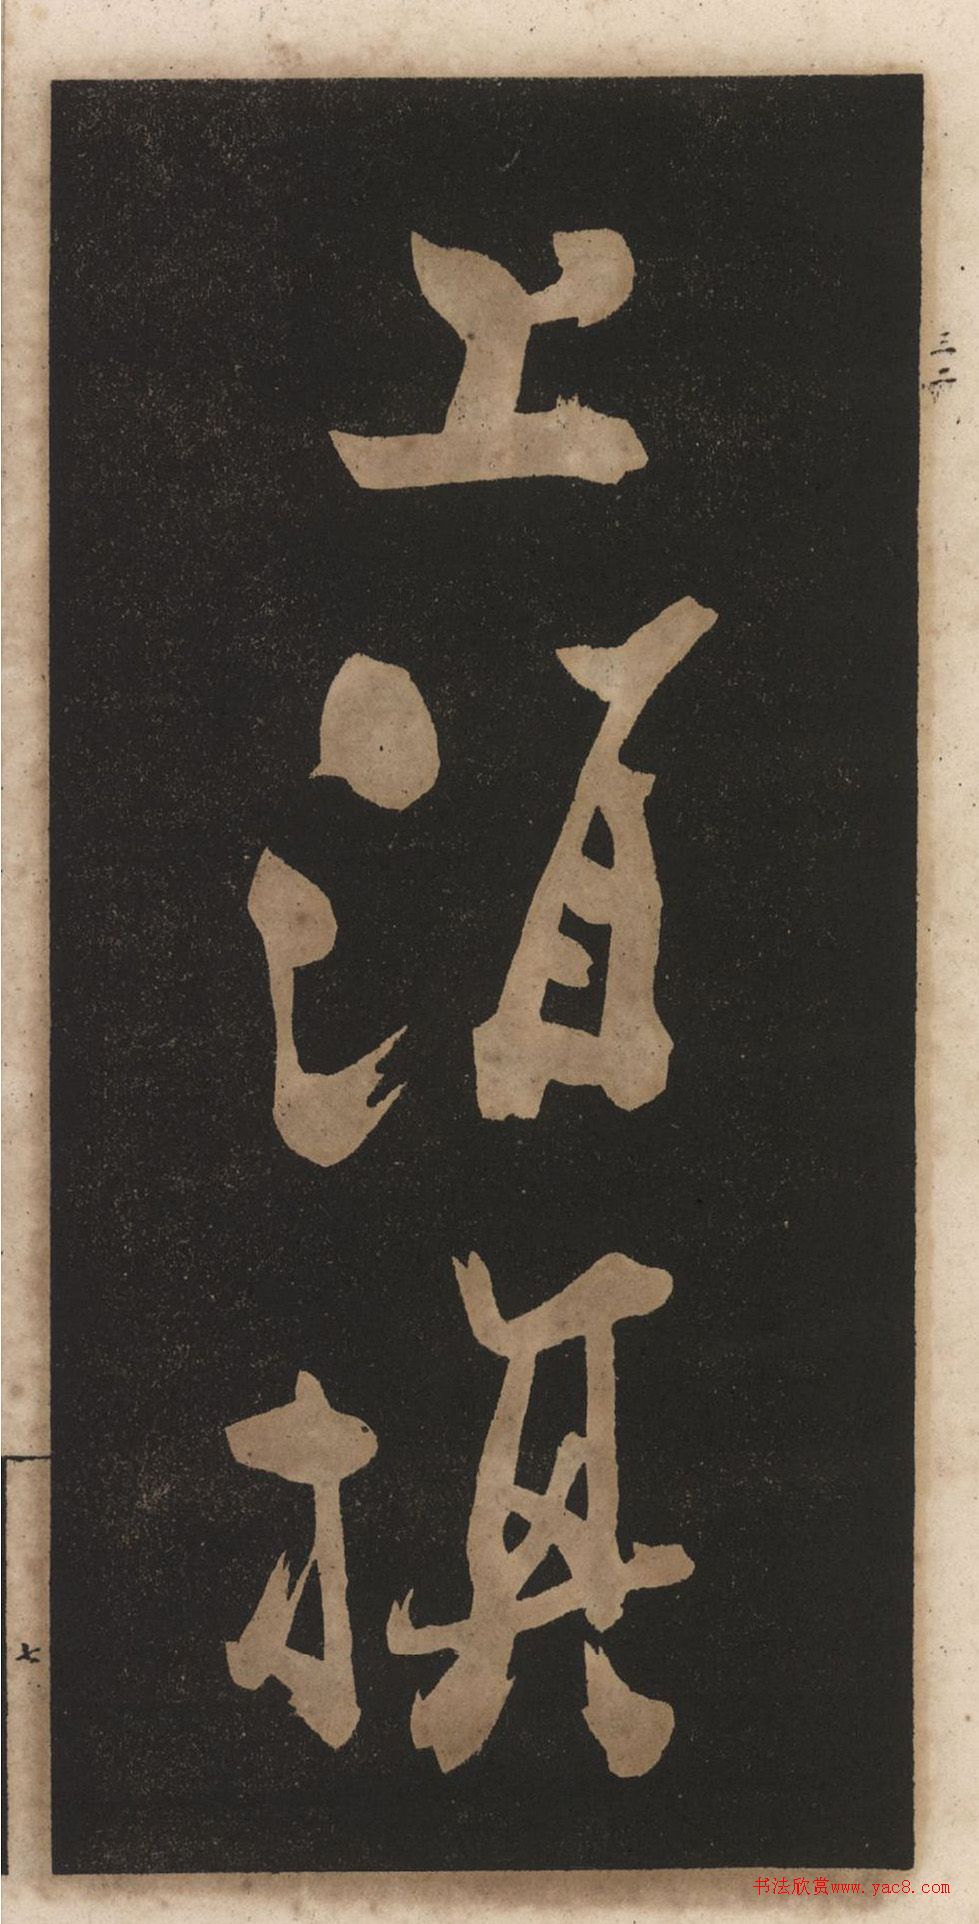 上
湏
棋
七
书法欣赏www.yac8.com